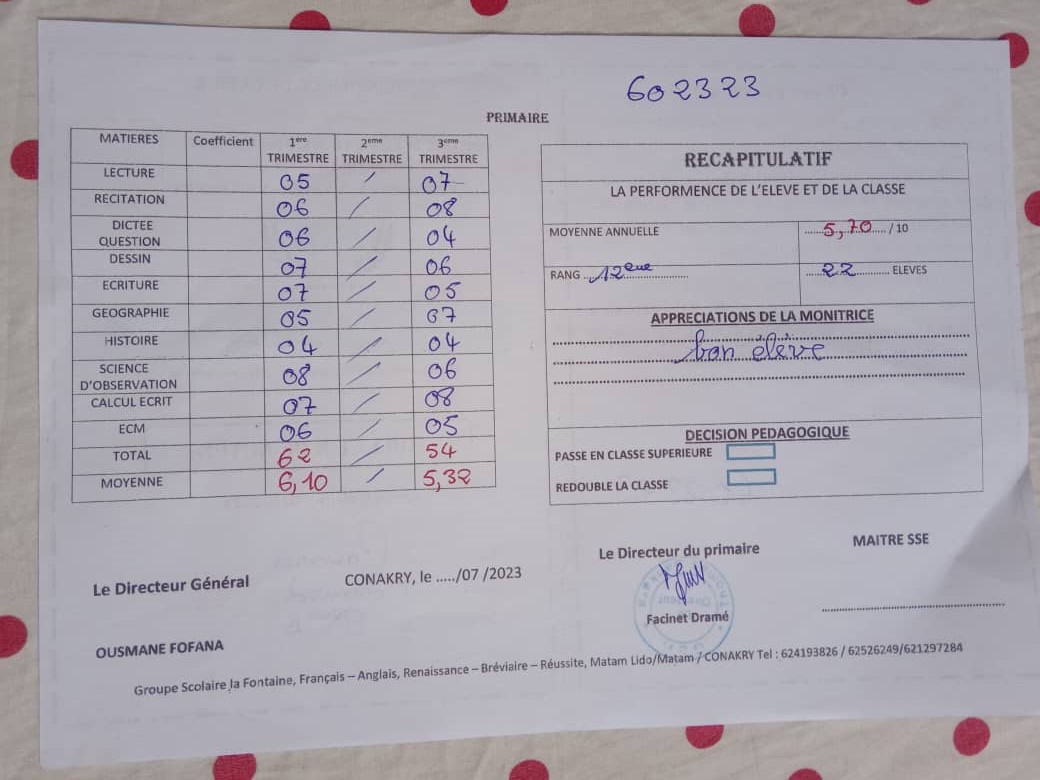 602323
PRIMAIRE
MATIERES Coefficient 1ere TRIMESTRE 2eme TRIMESTRE 3eme TRIMESTRE
LECTURE 05 / 07
RECITATION 06 / 08
DICTEE QUESTION 06 / 04
DESSIN 07 / 06
ECRITURE 07 / 05
GEOGRAPHIE 05 / 07
HISTOIRE 04 / 04
SCIENCE D'OBSERVATION 08 / 06
CALCUL ECRIT 07 / 08
ECM 06 / 05
TOTAL 62 / 54
MOYENNE 6,10 / 5,32
RECAPITULATIF
LA PERFORMENCE DE L'ELEVE ET DE LA CLASSE
MOYENNE ANNUELLE 5,70 / 10
RANG 12eme 22 ELEVES
APPRECIATIONS DE LA MONITRICE
bon élève
DECISION PEDAGOGIQUE
PASSE EN CLASSE SUPERIEURE
REDOUBLE LA CLASSE
Le Directeur Général
CONAKRY, le ...../07 /2023
Le Directeur du primaire
MAITRE SSE
Facinet Dramé
OUSMANE FOFANA
Groupe Scolaire la Fontaine, Français – Anglais, Renaissance – Bréviaire – Réussite, Matam Lido/Matam / CONAKRY Tel : 624193826 / 62526249/621297284